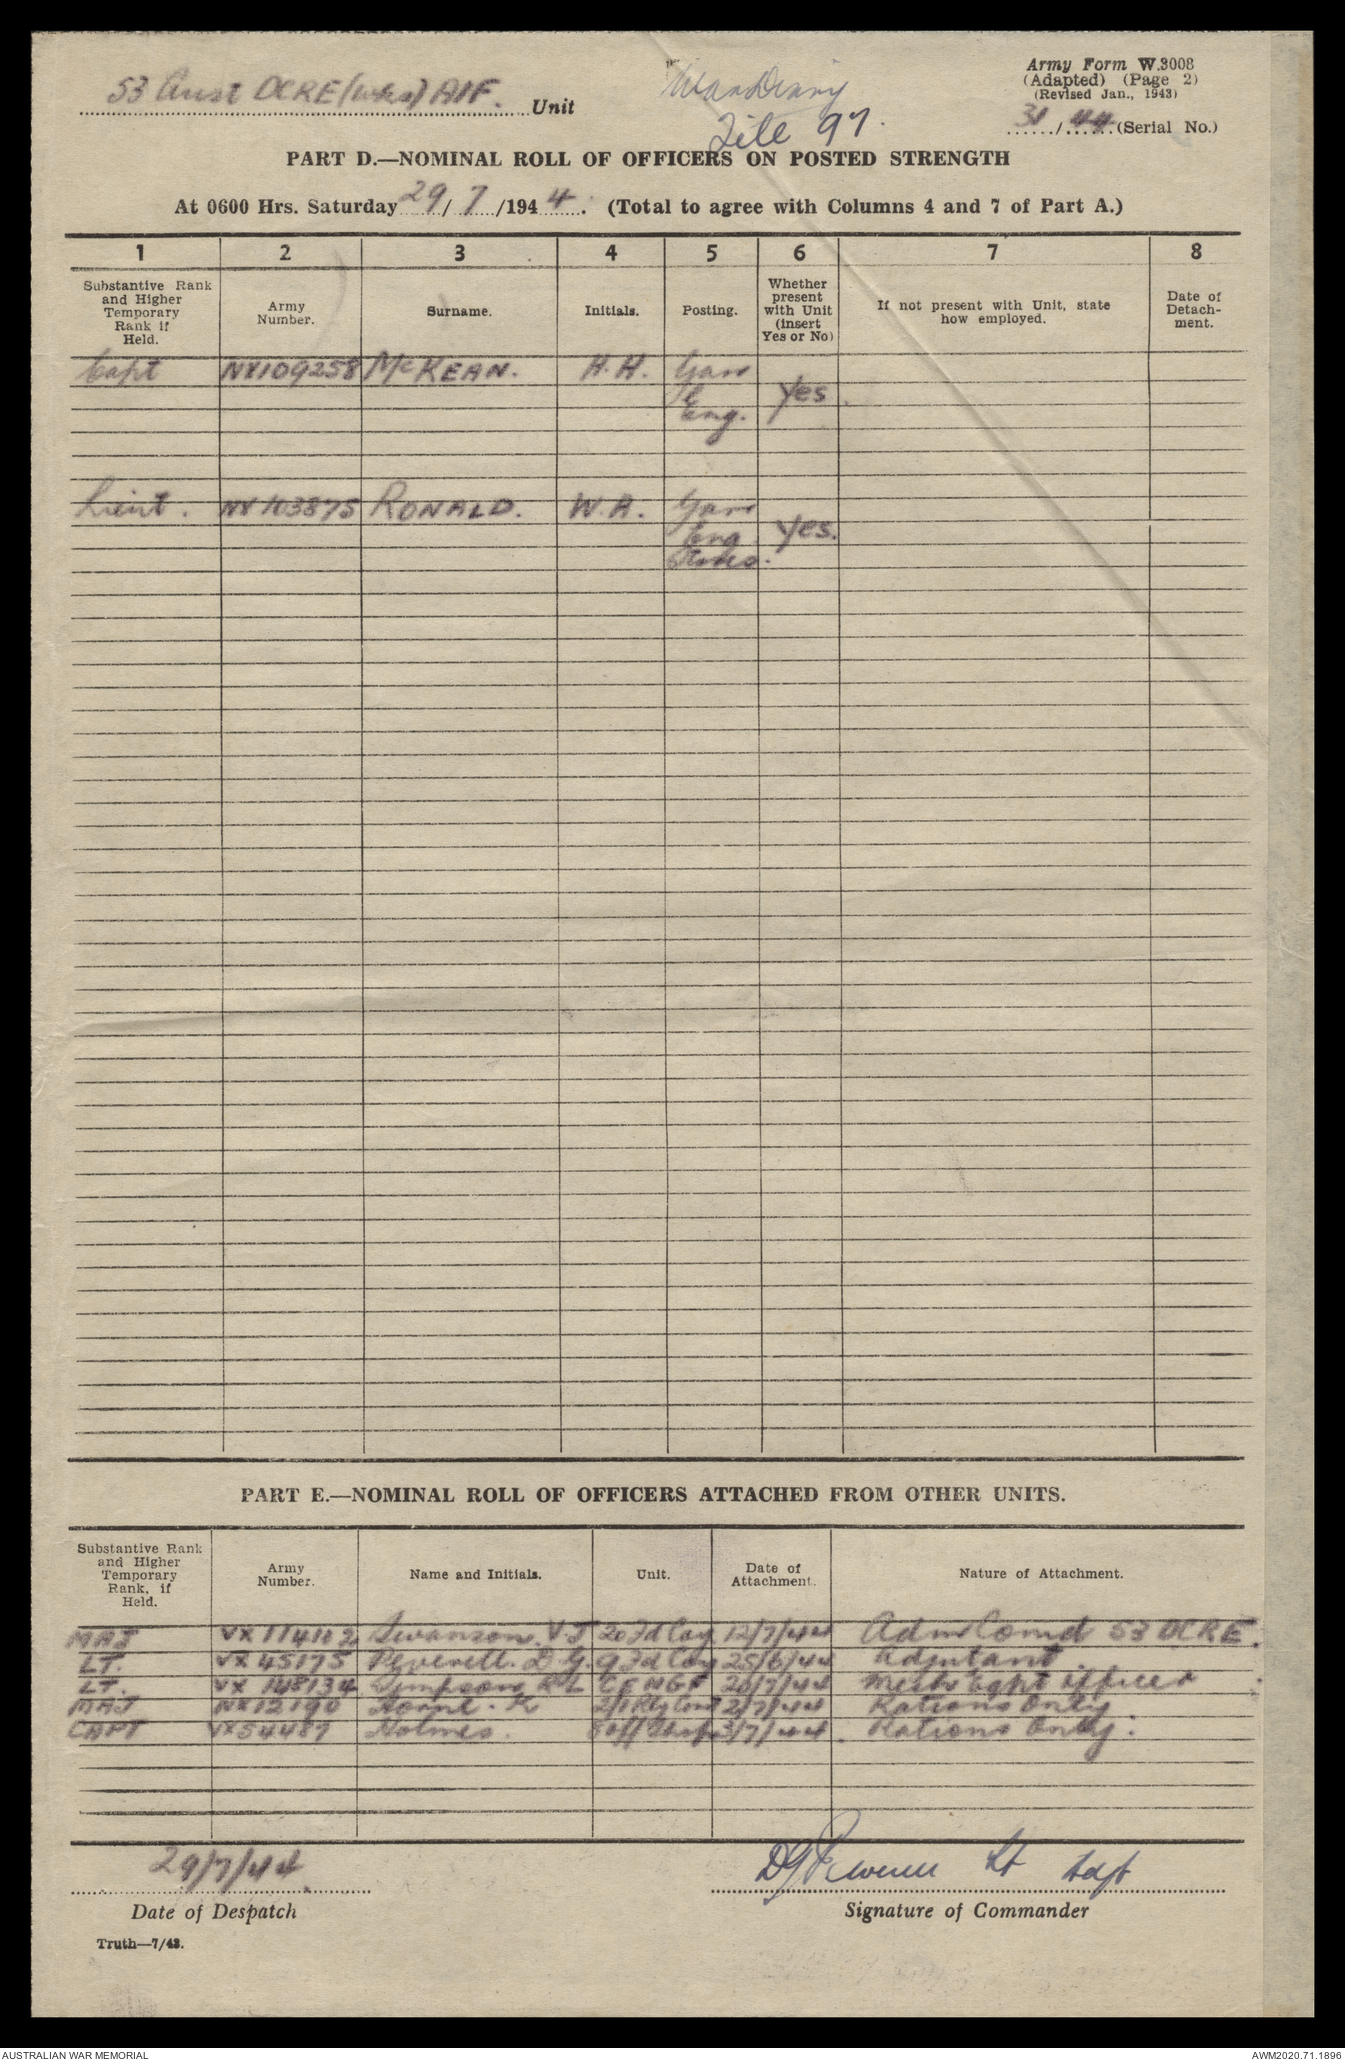 Army Form W.3008
(Adapted) (Page 2)
(Revised Jan., 1943)
31/44 (Serial No.)
53 Aust DCRE (wks) AIF. Unit
War Diary
File 97.
PART D.—NOMINAL ROLL OF OFFICERS ON POSTED STRENGTH
At 0600 Hrs. Saturday 29/7/1944. (Total to agree with Columns 4 and 7 of Part A.)
1 2 3 4 5 6 7 8
Substantive Rank and Higher Temporary Rank if Held. Army Number. Surname. Initials. Posting. Whether present with Unit (insert Yes or No) If not present with Unit, state how employed. Date of Detach-ment.
Capt NX109258 McKEAN. H.H. Garr
Yes
Eng.
Lieut. NX103875 RONALD. W.A. Garr
Eng. Yes.
Stores.
PART E.—NOMINAL ROLL OF OFFICERS ATTACHED FROM OTHER UNITS.
Substantive Rank and Higher Temporary Rank, if Held. Army Number. Name and Initials. Unit. Date of Attachment. Nature of Attachment.
MAJ VX114102 Swanson. V J 20 Fd Coy 12/7/44 Adm Comd 53 DCRE.
LT. VX45175 Peverell. D.G. 9 Fd Coy 25/6/44 Adjutant
LT. VX148134 Simpson R L CE NGF 20/7/44 Mech Eqpt Officer
MAJ NX12190 Horne. K 2/1 Rly Const 2/7/44 Rations Only
CAPT VX54487 Holmes. 3/7/44. Rations Only.
29/7/44.
DG Peverell Lt Adjt
Date of Despatch
Signature of Commander
Truth—7/43.
AUSTRALIAN WAR MEMORIAL
AWM2020.71.1896